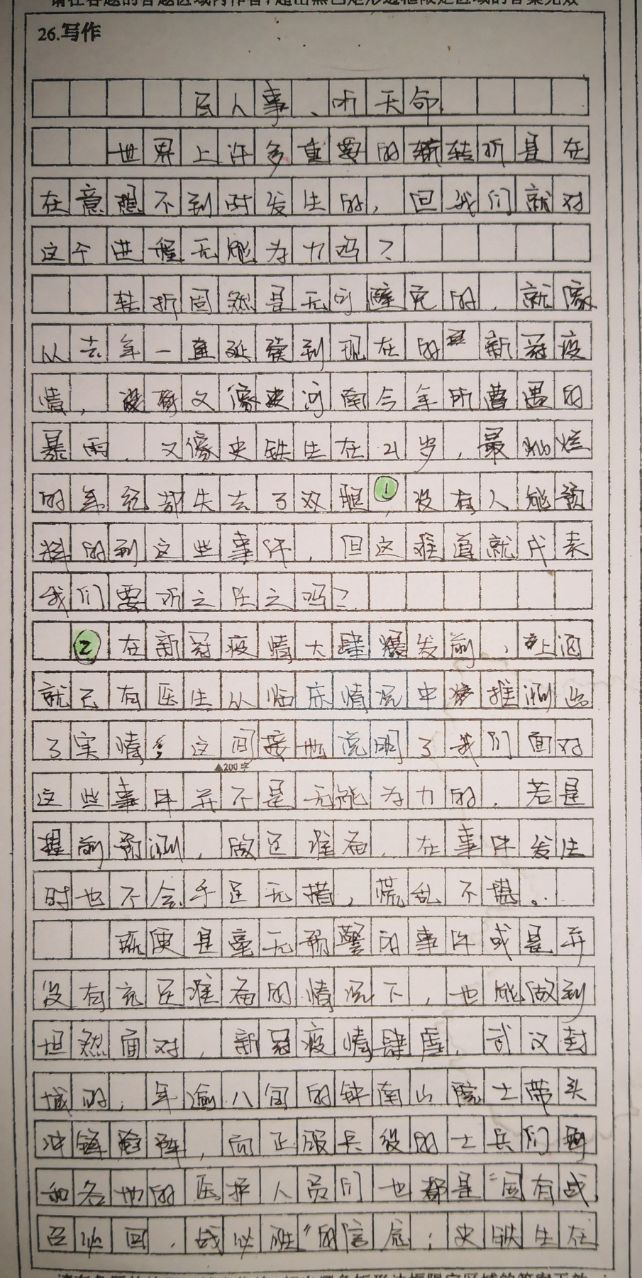 26.写作
尽人事、听天命
世界上许多重要的转折是在
在意想不到时发生的,但我们就对
这个进程无能为力吗?
转折固然是无可避免的,就像
从去年一直延续到现在的新冠疫
情,又像河南今年所遭遇的
暴雨,又像史铁生在21岁,最灿烂
的年纪却失去了双腿①没有人能预
料的到这些事件,但这难道就代表
我们要听之任之吗?
②在新冠疫情大肆爆发前,
就已有医生从临床情况中推测出
了实情,这间接地说明了我们面对
▲200字
这些事件并不是无能为力的,若是
提前预测,做足准备,在事件发生
时也不会手足无措,慌乱不堪。
即便是毫无预警的事件或是并
没有充足准备的情况下,也能做到
坦然面对,新冠疫情肆虐,武汉封
城时,年逾八旬的钟南山院士带头
冲锋陷阵,向正服兵役的士兵们
和各地的医护人员们也都是“国有战
召必回,战必胜”的信念;史铁生在